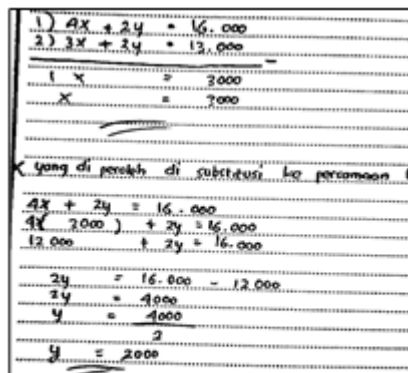 1) 4x + 2y = 16.000
2) 3x + 2y = 13.000
1 x = 3000
x = 3000
x yang di peroleh di substitusi ke persamaan
4x + 2y = 16.000
4( 3000 ) + 2y = 16.000
12 000 + 2y = 16.000
2y = 16.000 - 12 000
2y = 4000
y = 4000
2
y = 2000